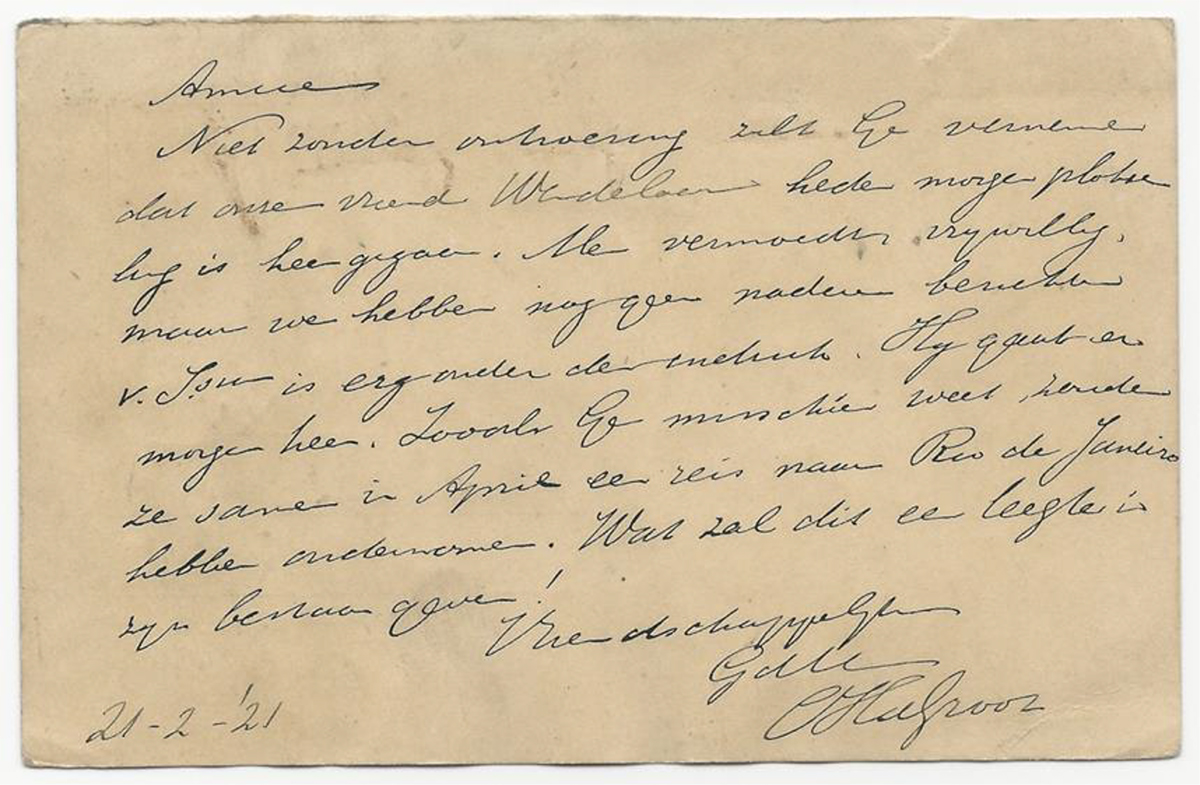 Amice
Niet zonder ontroering zult Ge verneme
dat onze vriend Wendelaar heden morgen plotse
ling is heengegaan. Men vermoedt vrijwillig,
maar we hebben nog geen nadere berichten
v. is erg onder den indruk. Hij gaat er
morgen heen. Zooals Ge misschien weet, zouden
ze samen in April een reis naar Rio de Janeiro
hebben ondernomen. Wat zal dit een leegte in
zijn bestaan geven!
Vriendschappelijk
21-2-'21